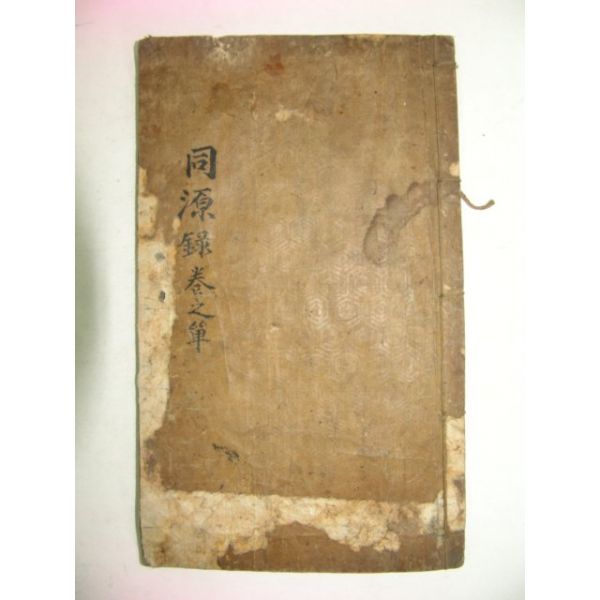 同源錄卷之單